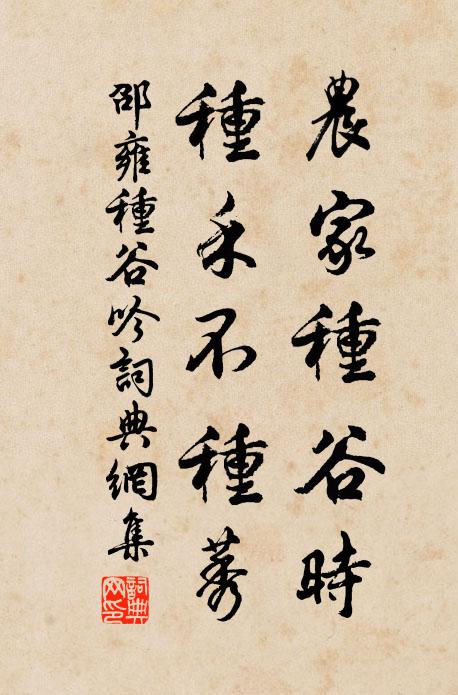 農家種谷時
種禾不種莠
邵雍種谷吟詞典網集
詞典